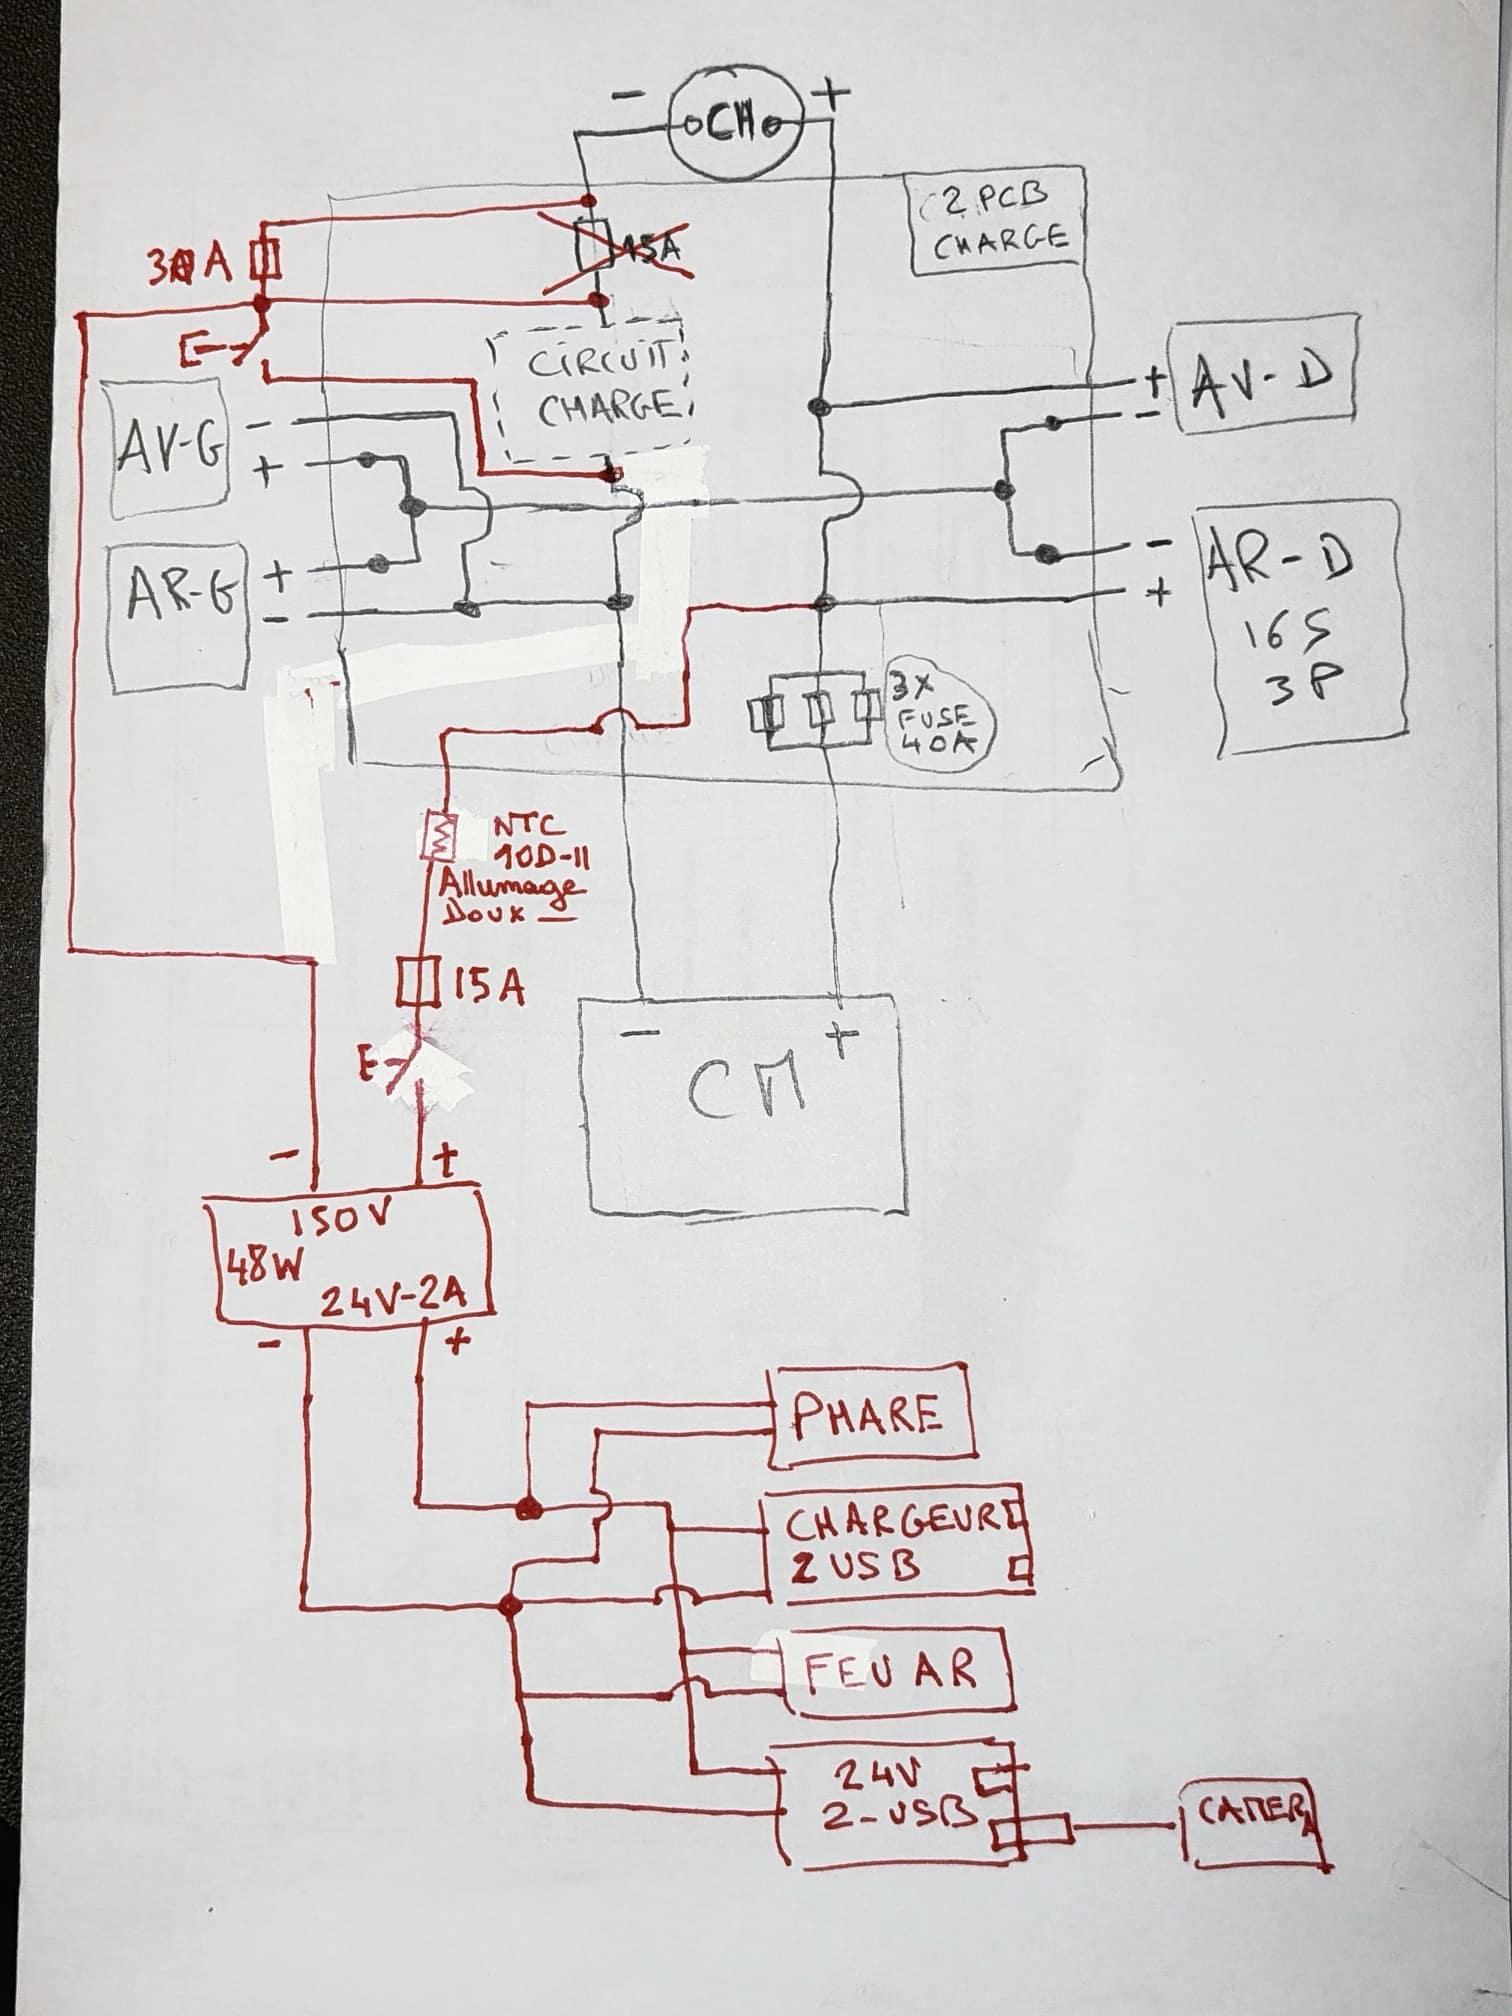 - CH +
2 PCB
CHARGE
30 A
15A
CIRCUIT
CHARGE
AV-G
-
+
+ AV-D
-
AR-G
+
-
- AR-D
+
16S
3P
3X
FUSE
40A
NTC
10D-11
Allumage
Doux
15A
- +
CM
- +
150V
48W
24V-2A
- +
PHARE
CHARGEUR
2 USB
FEU AR
24V
2-USB
CAMERA